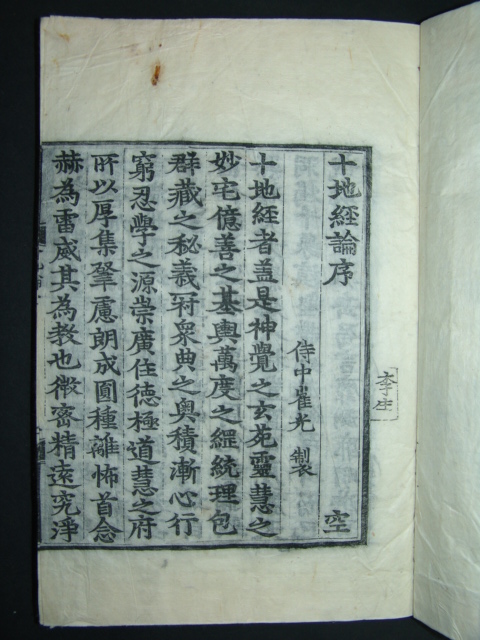 十地經論序 空
侍中崔光 製
十地經者盖是神覺之玄苑靈慧之
妙宅億善之基輿萬度之綱統理包
群藏之秘義冠衆典之奧積漸心行
窮忍學之源崇廣住德極道慧之府
所以厚集肇慮朗成圓種離怖首念
赫為雷威其為教也微密精遠究淨
李生